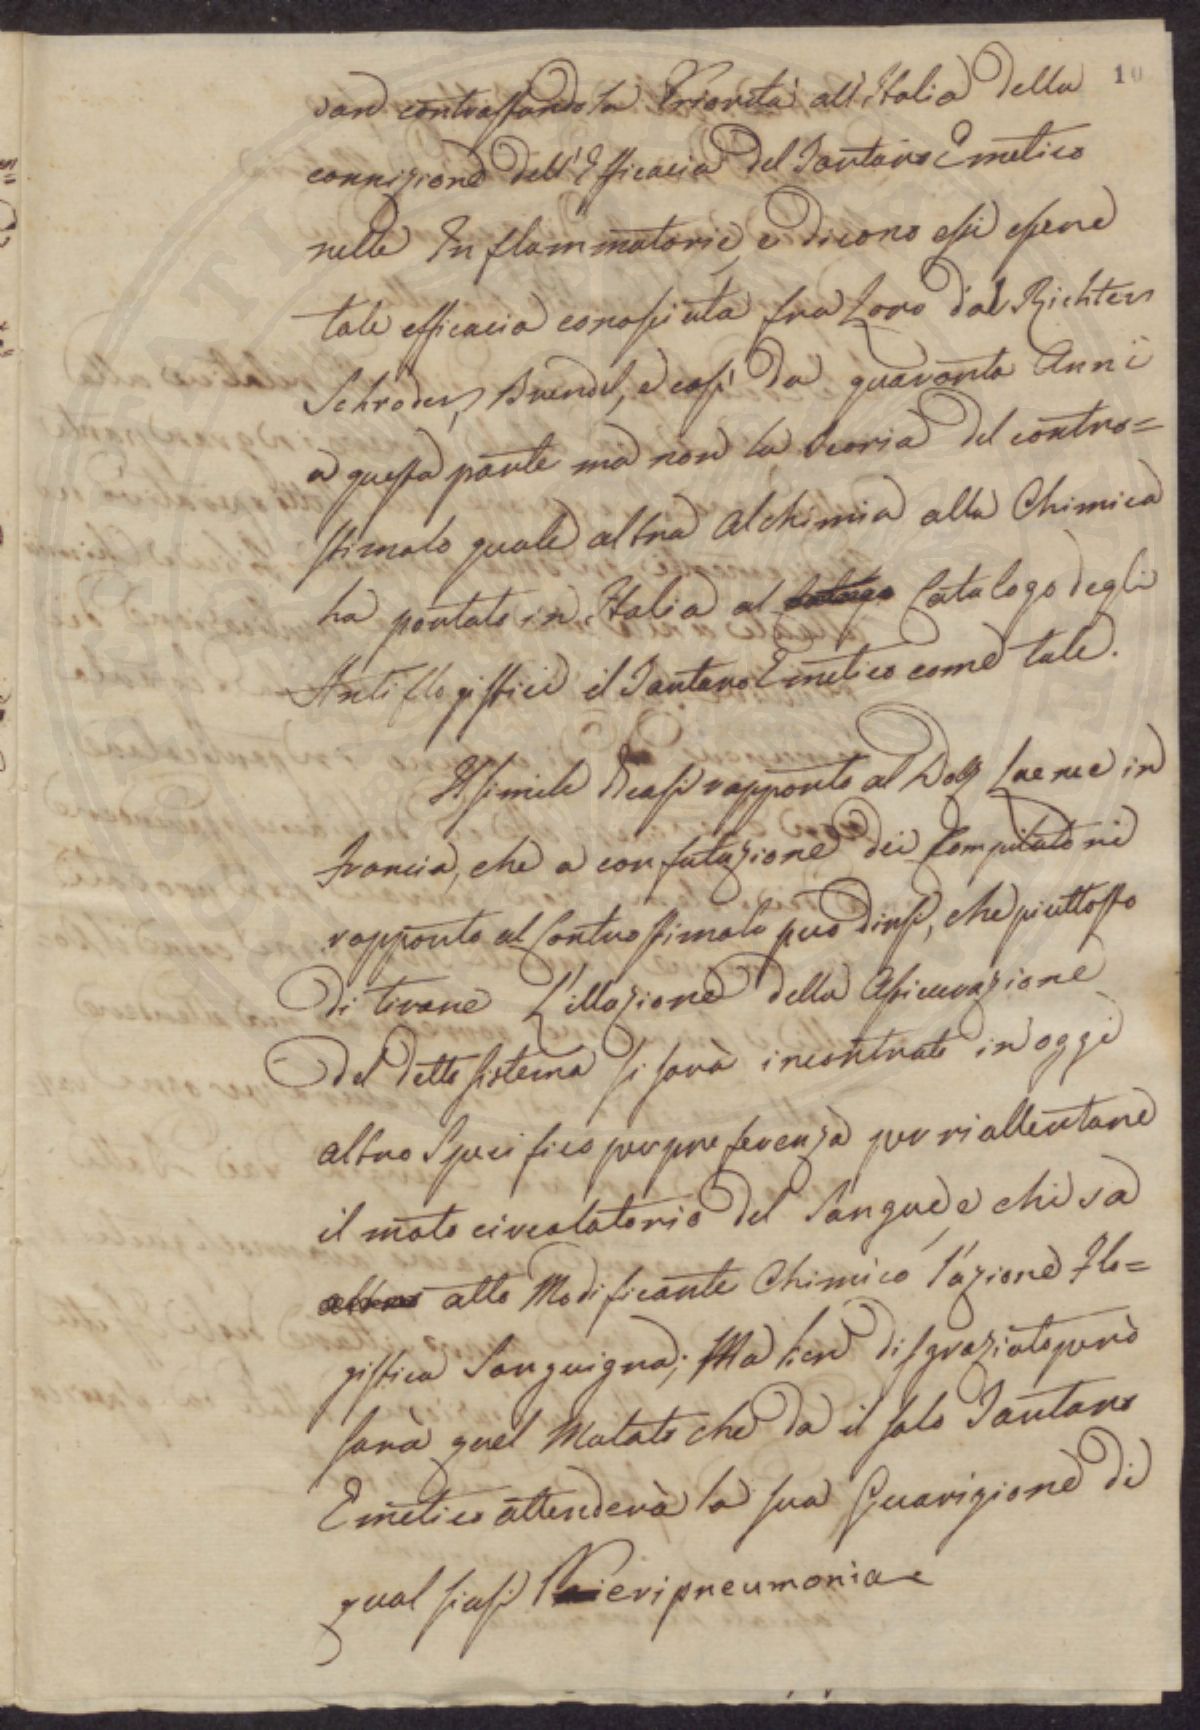 10
van contrastando la Priorità all'Italia della
connizione dell'Efficacia del Tartaro Emetico
nelle Inflammatorie, e dicono essi essere
tale efficacia conosciuta fra Loro dal Richter
Schröder, Brendel, e così da quaranta Anni
a questa parte ma non la teoria del contro=
stimolo quale altra Alchimia alla Chimica
ha portato in Italia al Catalogo degli
Antiflogistici il Tartaro Emetico come tale.
Il simile dicasi rapporto al Dott Laenec in
Francia, che a confutazione dei Compilatori
rapporto al Controstimolo può dirsi, che piuttosto
di tirare L'illazione della Assicurazione
del detto sistema si sarà incontrato in oggi
altro Specifico per preferenza per riallentare
il moto circolatorio del Sangue, e chi sa
altro Modificante Chimico l'azione Flo=
gistica Sanguigna; Ma ben disgraziato però
sarà quel Malato che da il solo Tartaro
Emetico attenderà la sua Guarigione di
qual siasi Peripneumonia